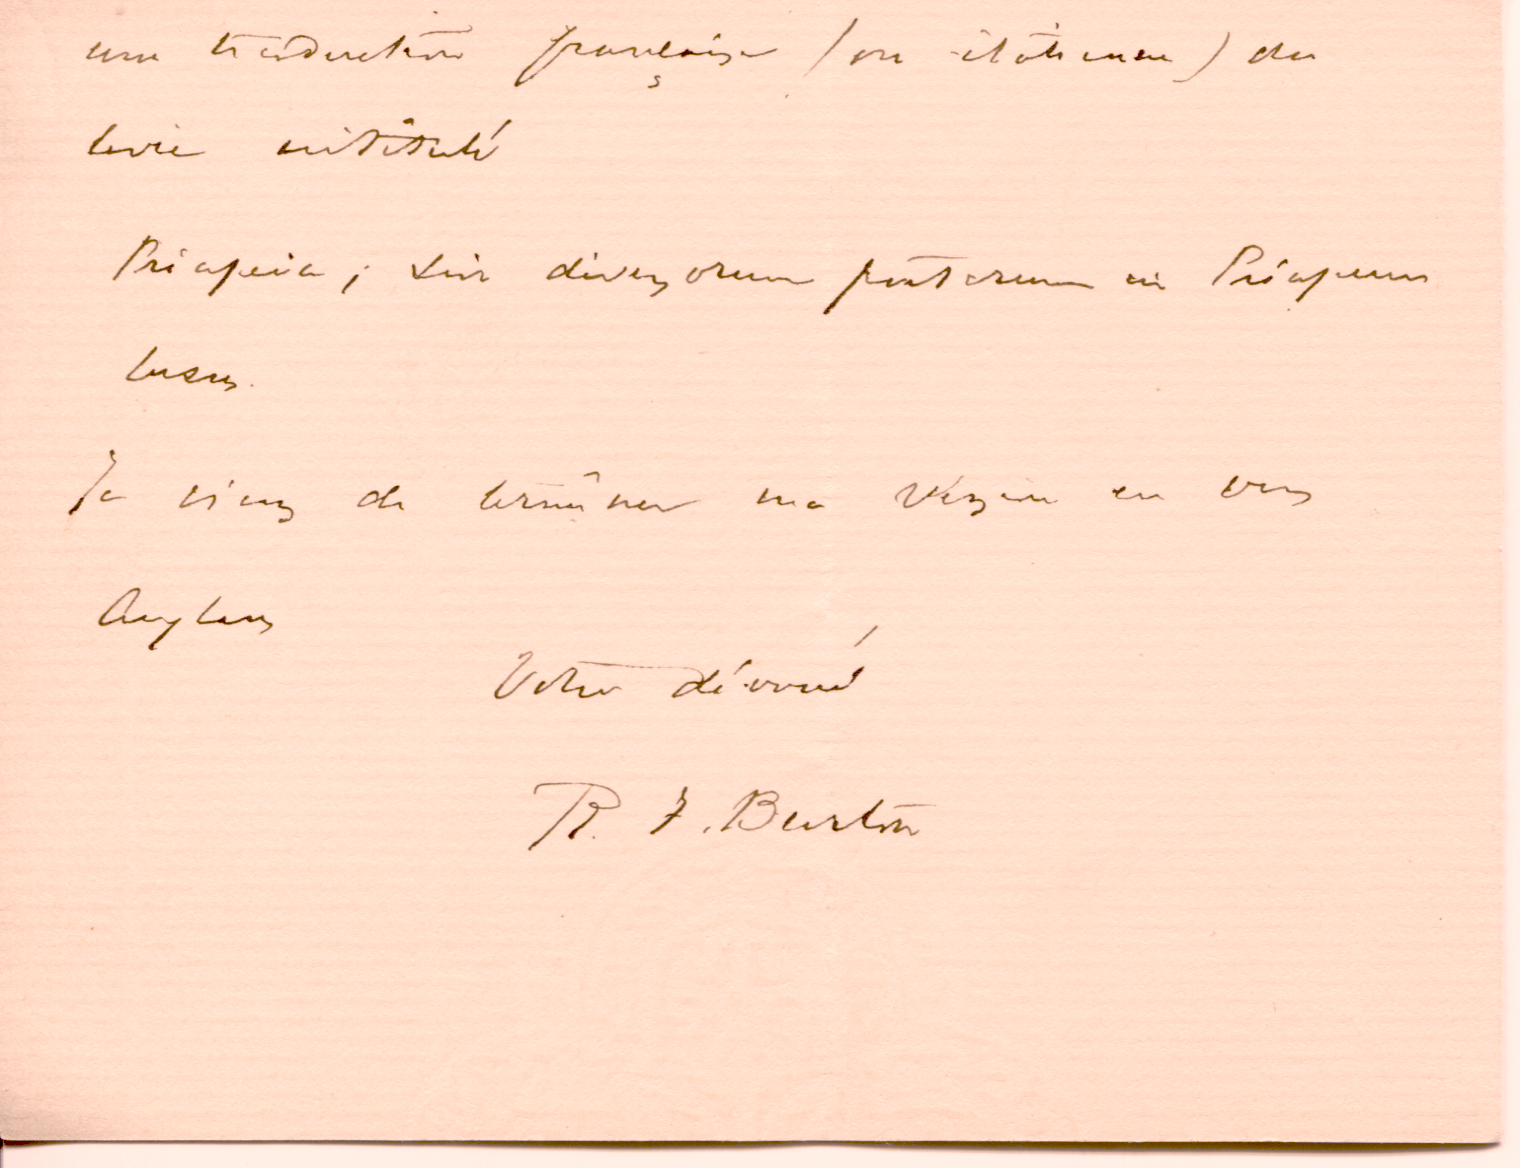 une traduction française (ou italienne) du
livre intitulé
Priapeia; sive diversorum poetarum in Priapum
lusus.
Je viens de terminer ma version en vers
Anglais
Votre dévoué
R. F. Burton